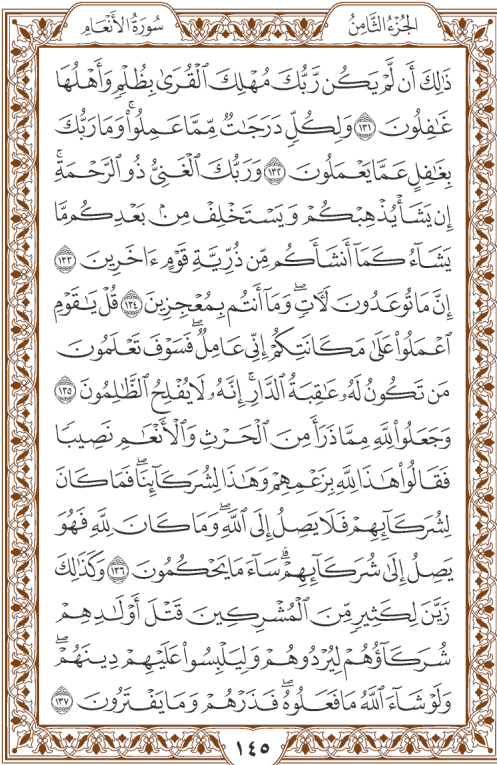 سُورَةُ الأَنْعَامِ
الجُزْءُ الثَّامِنُ
ذَٰلِكَ أَن لَّمْ يَكُن رَّبُّكَ مُهْلِكَ ٱلْقُرَىٰ بِظُلْمٍ وَأَهْلُهَا
غَٰفِلُونَ ١٣١ وَلِكُلٍّ دَرَجَٰتٌ مِّمَّا عَمِلُوا۟ۚ وَمَا رَبُّكَ
بِغَٰفِلٍ عَمَّا يَعْمَلُونَ ١٣٢ وَرَبُّكَ ٱلْغَنِىُّ ذُو ٱلرَّحْمَةِۚ
إِن يَشَأْ يُذْهِبْكُمْ وَيَسْتَخْلِفْ مِنۢ بَعْدِكُم مَّا
يَشَآءُ كَمَآ أَنشَأَكُم مِّن ذُرِّيَّةِ قَوْمٍ ءَاخَرِينَ ١٣٣
إِنَّ مَا تُوعَدُونَ لَءَاتٍۖ وَمَآ أَنتُم بِمُعْجِزِينَ ١٣٤ قُلْ يَٰقَوْمِ
ٱعْمَلُوا۟ عَلَىٰ مَكَانَتِكُمْ إِنِّى عَامِلٌۖ فَسَوْفَ تَعْلَمُونَ
مَن تَكُونُ لَهُۥ عَٰقِبَةُ ٱلدَّارِۚ إِنَّهُۥ لَا يُفْلِحُ ٱلظَّٰلِمُونَ ١٣٥
وَجَعَلُوا۟ لِلَّهِ مِمَّا ذَرَأَ مِنَ ٱلْحَرْثِ وَٱلْأَنْعَٰمِ نَصِيبًا
فَقَالُوا۟ هَٰذَا لِلَّهِ بِزَعْمِهِمْ وَهَٰذَا لِشُرَكَآئِنَاۖ فَمَا كَانَ
لِشُرَكَآئِهِمْ فَلَا يَصِلُ إِلَى ٱللَّهِۖ وَمَا كَانَ لِلَّهِ فَهُوَ
يَصِلُ إِلَىٰ شُرَكَآئِهِمْۗ سَآءَ مَا يَحْكُمُونَ ١٣٦ وَكَذَٰلِكَ
زَيَّنَ لِكَثِيرٍ مِّنَ ٱلْمُشْرِكِينَ قَتْلَ أَوْلَٰدِهِمْ
شُرَكَآؤُهُمْ لِيُرْدُوهُمْ وَلِيَلْبِسُوا۟ عَلَيْهِمْ دِينَهُمْۖ
وَلَوْ شَآءَ ٱللَّهُ مَا فَعَلُوهُۖ فَذَرْهُمْ وَمَا يَفْتَرُونَ ١٣٧
١٤٥